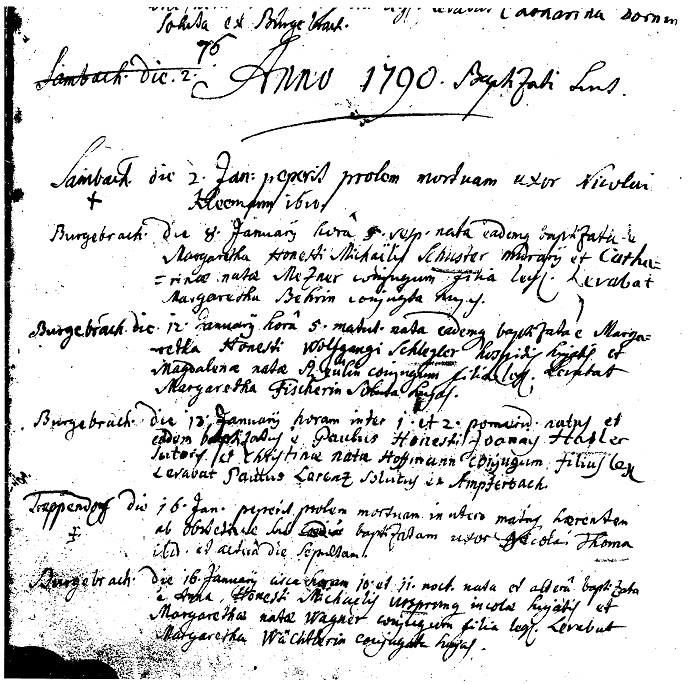 levabat Catharina Dornin
soluta ex Burgebrach.
76
Sambach. die. 2. Anno 1790. Baptizati sunt.
Sambach die 2. Jan: peperit prolem mortuam uxor Nicolai
+ Kleemann ibid.
Burgebrach. die 8. January horâ 5. vesp. nata eademq baptizata ē
Margaretha Honesti Michaëlis Schuster murarij et Catha=
=rinæ natæ Mezner conjugum filia leg. Levabat
Margaretha Behrin conjugata hujas.
Burgebrach die 12. January horâ 5. matut. nata eademq baptizata ē Marga=
retha Honesti Wolfgangi Schlegler hospitis hujatis et
Magdalenæ natæ conjugum filia leg. Levabat
Margaretha Fischerin soluta hujas.
Burgebrach. die 13. January horam inter 1. et 2. pomerid. natus et
eadem baptizatus ē Paulus Honesti Joannis Hasler
sutoris et Christinæ natæ Hoffmann conjugum filius leg
Levabat Paulus Lorenz solutus ex Ampferbach.
Treppendorf die 16. Jan. peperit prolem mortuam in utero matris hærentem
+ ab obstetrice sub baptizatam uxor Nicolai Thoma
ibid. et altera die sepultam.
Burgebrach. die 16. January circa horam 10. et 11. noct. nata et alterâ baptizata
ē Anna, Honesti Michaëlis Ursprung incolæ hujatis et
Margarethæ natæ Wagner conjugum filia leg. Levabat
Margaretha Wächtherin conjugata hujas.